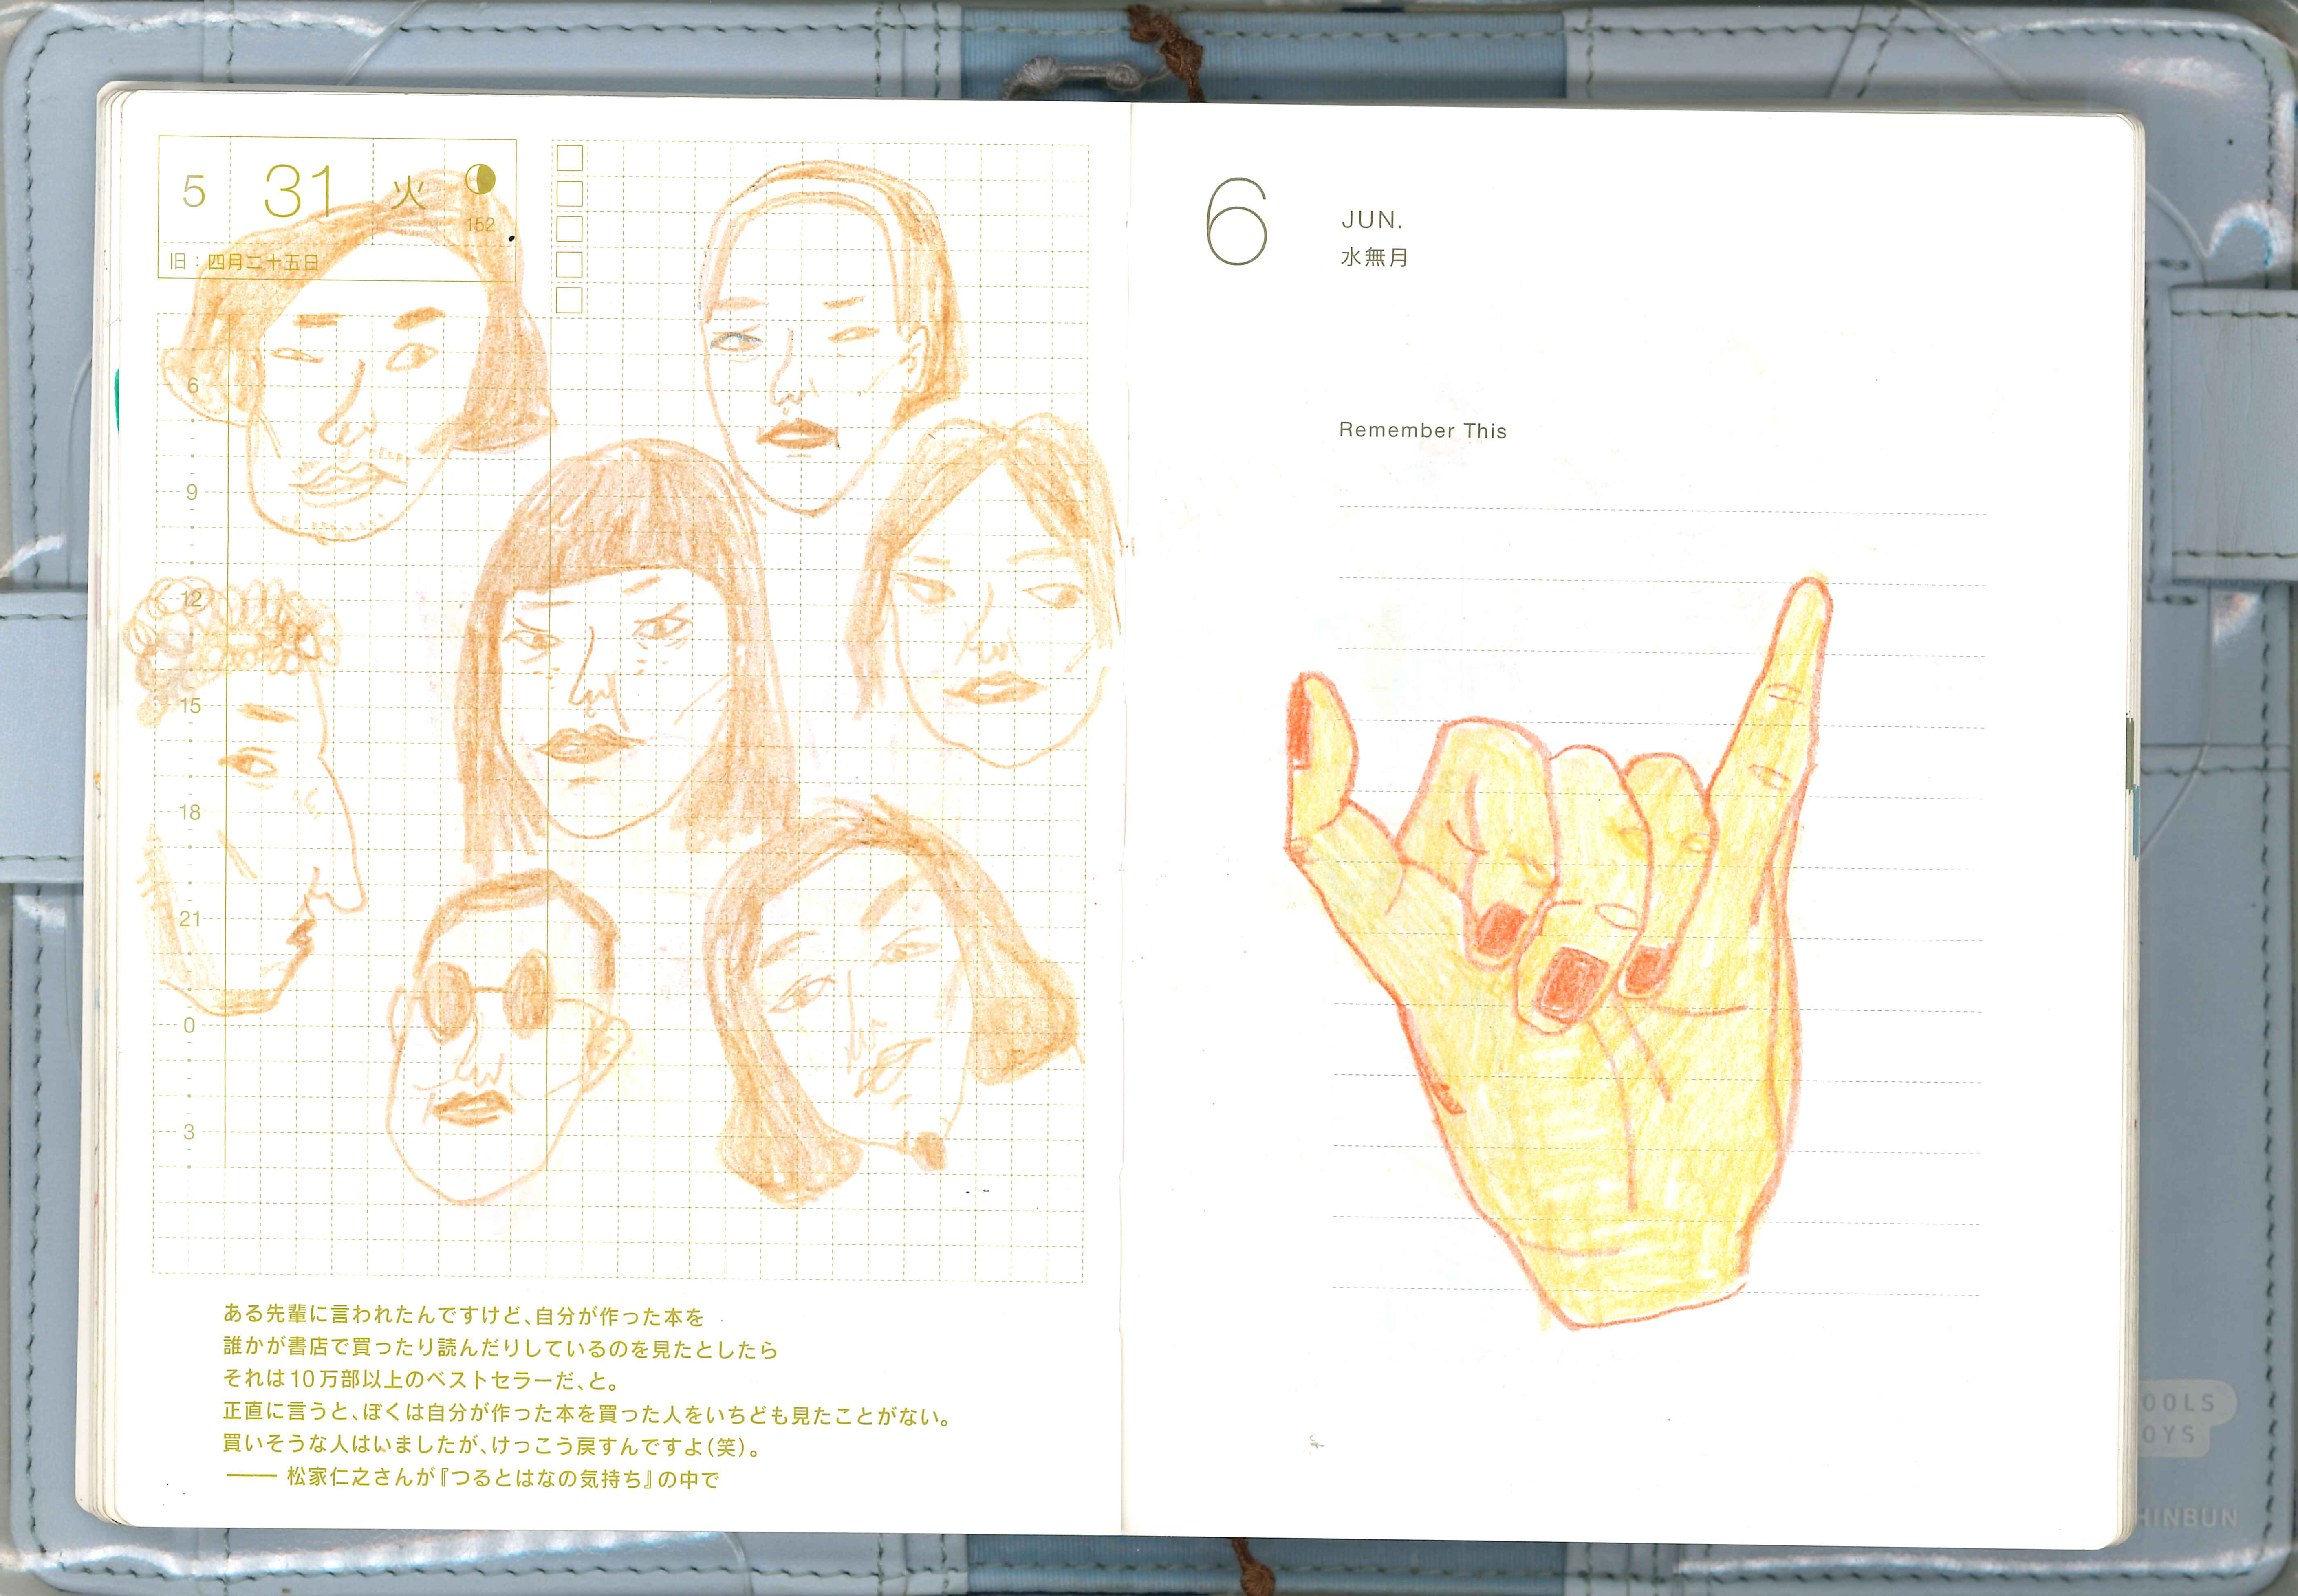 5 31 火
152
旧：四月二十五日
6
9
12
15
18
21
0
3
ある先輩に言われたんですけど、自分が作った本を
誰かが書店で買ったり読んだりしているのを見たとしたら
それは10万部以上のベストセラーだ、と。
正直に言うと、ぼくは自分が作った本を買った人をいちども見たことがない。
買いそうな人はいましたが、けっこう戻すんですよ（笑）。
—— 松家仁之さんが『つるとはなの気持ち』の中で
6
JUN.
水無月
Remember This
OOLS
OYS
HINBUN